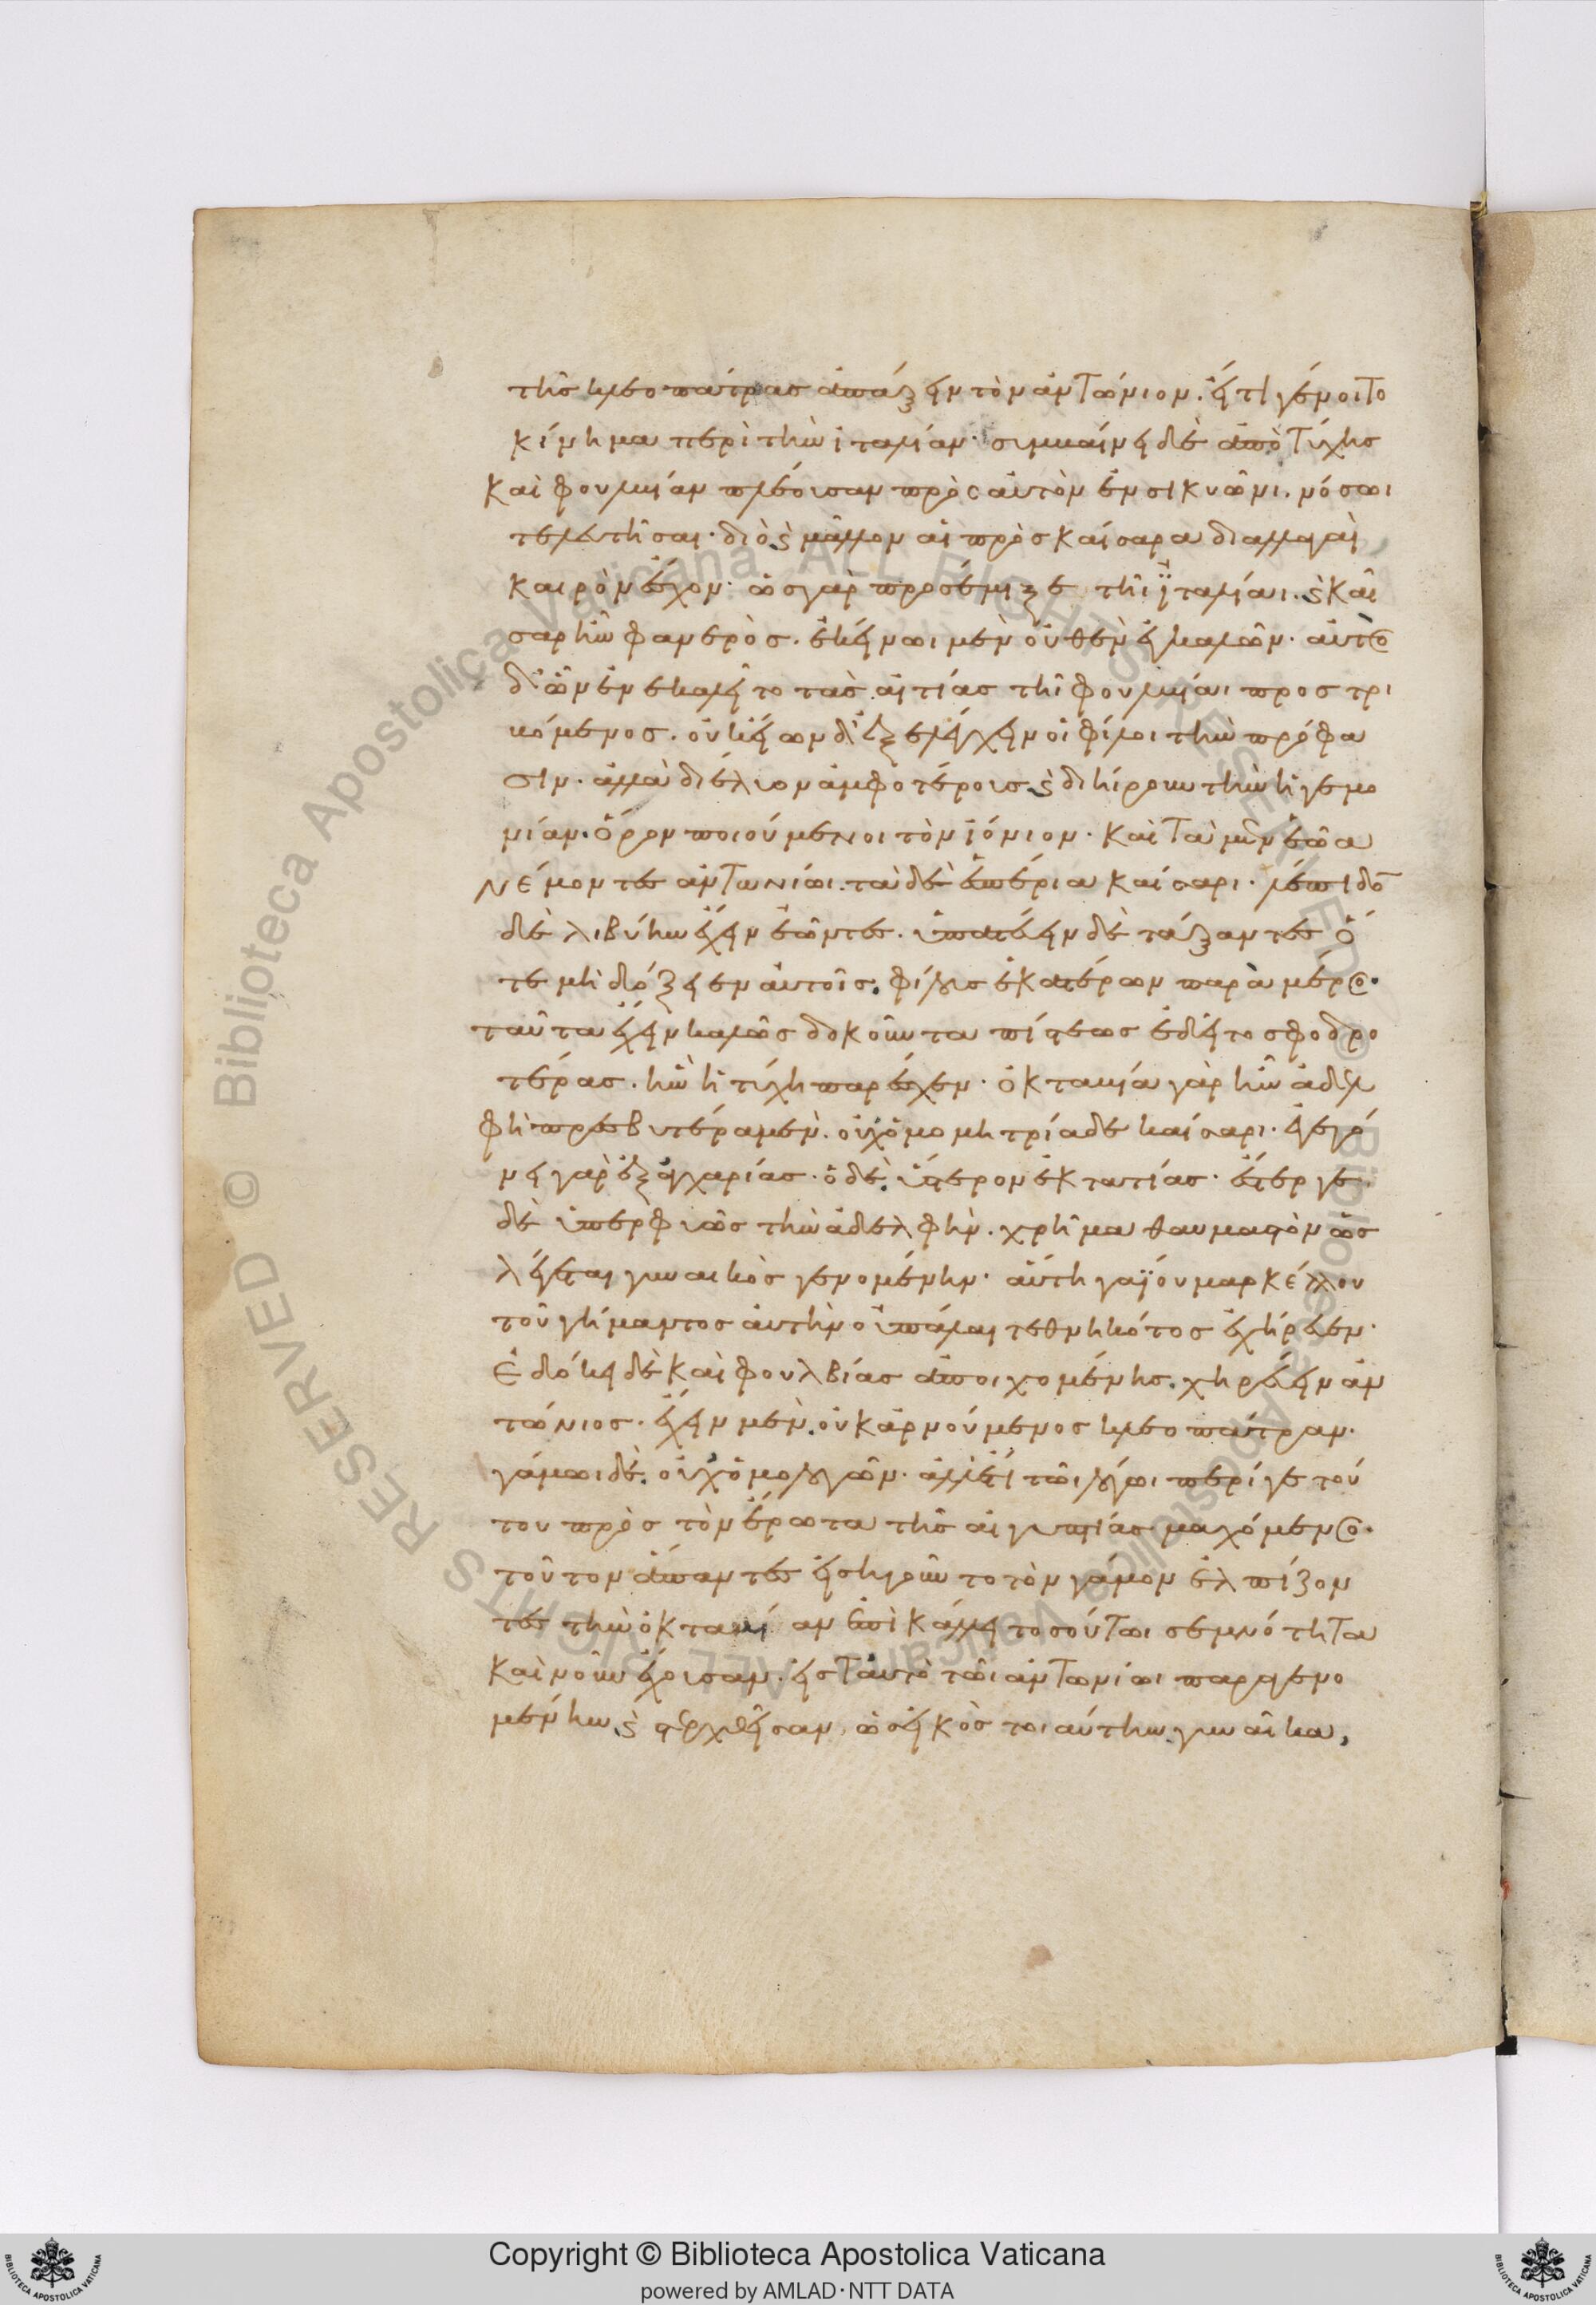 τῆς κλεοπάτρας ἀπάξειν τὸν ἀντώνιον. εἴ τι γένοιτο
κίνημα περὶ τὴν ἰταλίαν· συμβαίνει δὲ ἀπὸ τύχης
καὶ φουλβίαν πλέουσαν πρὸς αὐτὸν ἐν σικυῶνι. νόσωι
τελευτῆσαι· διὸ ϗ μᾶλλον αἱ πρὸς καίσαρα διαλλαγαὶ
καιρὸν ἔσχον· ὡς γὰρ προσέμιξε τῆι ἰταλίαι. ϗ καῖ
σαρ ἦν φανερὸς. ἐκείνωι μὲν οὐθὲν ἐγκαλῶν· αὐτὸς
δ' ὧν ἐνεκαλεῖτο τὰς αἰτίας τῆι φουλβίαι προστρι
βόμενος. οὐκ εἴων δ' ἐξελέγχειν οἱ φίλοι τὴν πρόφα
σιν. ἀλλὰ διέλυον ἀμφοτέρους ϗ διήιρουν τὴν ἡγεμο
νίαν. ὅρον ποιούμενοι τὸν ἰόνιον· καὶ τὰ μὲν ἑῶα
νέμοντες ἀντωνίωι. τὰ δὲ ἑσπέρια καίσαρι. λέπιδον
δὲ λιβύην ἔχειν ἐῶντες. ὑπατεύειν δὲ τάξαντες ὅ
τε μὴ δόξειεν αὐτοῖς. φίλους ἑκατέρων παρὰ μέρος.
ταῦτα ἔχειν καλῶς δοκοῦντα πίστεως ἐδεῖτο σφοδρο
τέρας. ἣν ἡ τύχη παρέσχεν· ὀκταβία γὰρ ἦν ἀδελ
φὴ πρεσβυτέρα μὲν. οὐχ ὁμομητρία δὲ καίσαρι. ἐγεγό
νει γὰρ ἐξ ἀγχαρίας. ὁ δὲ ὕστερον ἐκ τατίας. ἔστεργε
δὲ ὑπερφυῶς τὴν ἀδελφὴν. χρῆμα θαυμαστὸν ὡς
λέγεται γυναικὸς γενομένην. αὕτη γαΐου μαρκέλλου
τοῦ γήμαντος αὐτὴν οὐ πάλαι τεθνηκότος ἐχήρευεν.
ἐδόκει δὲ καὶ φουλβίας ἀποιχομένης. χηρεύειν ἀν
τώνιος. ἔχειν μὲν. οὐκ ἀρνούμενος κλεοπάτραν.
γάμωι δὲ. οὐχ ὁμολογῶν. ἀλλ' ἔτι τῶι λόγωι περί γε τού
του πρὸς τὸν ἔρωτα τῆς αἰγυπτίας μαχόμενος.
τοῦτον ἅπαντες εἰσηγοῦντο τὸν γάμον ἐλπίζον
τες τὴν ὀκταβίαν ἐπὶ κάλλει τοσούτωι σεμνότητα
καὶ νοῦν ἔχουσαν. εἰς ταυτὸ τῶι ἀντωνίωι παραγενο
μένην ϗ στερχθεῖσαν, ὡς εἰκὸς τοιαύτην γυναῖκα,
Copyright © Biblioteca Apostolica Vaticana
powered by AMLAD·NTT DATA